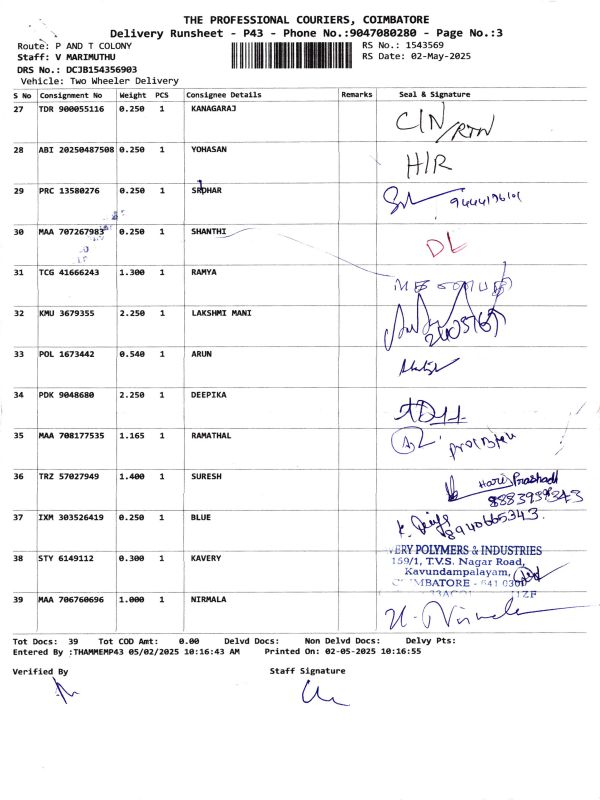 THE PROFESSIONAL COURIERS, COIMBATORE
Delivery Runsheet - P43 - Phone No.:9047080280 - Page No.:3
Route: P AND T COLONY RS No.: 1543569
Staff: V MARIMUTHU RS Date: 02-May-2025
DRS No.: DCJB154356903
Vehicle: Two Wheeler Delivery
S No Consignment No Weight PCS Consignee Details Remarks Seal & Signature
27 TDR 900055116 0.250 1 KANAGARAJ CIN/RTN
28 ABI 20250487508 0.250 1 YOHASAN H/R
29 PRC 13580276 0.250 1 SRDHAR
30 MAA 707267983 0.250 1 SHANTHI DL
31 TCG 41666243 1.300 1 RAMYA
32 KMU 3679355 2.250 1 LAKSHMI MANI
33 POL 1673442 0.540 1 ARUN
34 PDK 9048680 2.250 1 DEEPIKA
35 MAA 708177535 1.165 1 RAMATHAL
36 TRZ 57027949 1.400 1 SURESH Hariprashadh
37 IXM 303526419 0.250 1 BLUE 8940665343
38 STY 6149112 0.300 1 KAVERY
VERY POLYMERS & INDUSTRIES
159/1, T.V.S. Nagar Road,
Kavundampalayam,
39 MAA 706760696 1.000 1 NIRMALA N. Nirmala
Tot Docs: 39 Tot COD Amt: 0.00 Delvd Docs: Non Delvd Docs: Delvy Pts:
Entered By :THAMMEMP43 05/02/2025 10:16:43 AM Printed On: 02-05-2025 10:16:55
Verified By Staff Signature